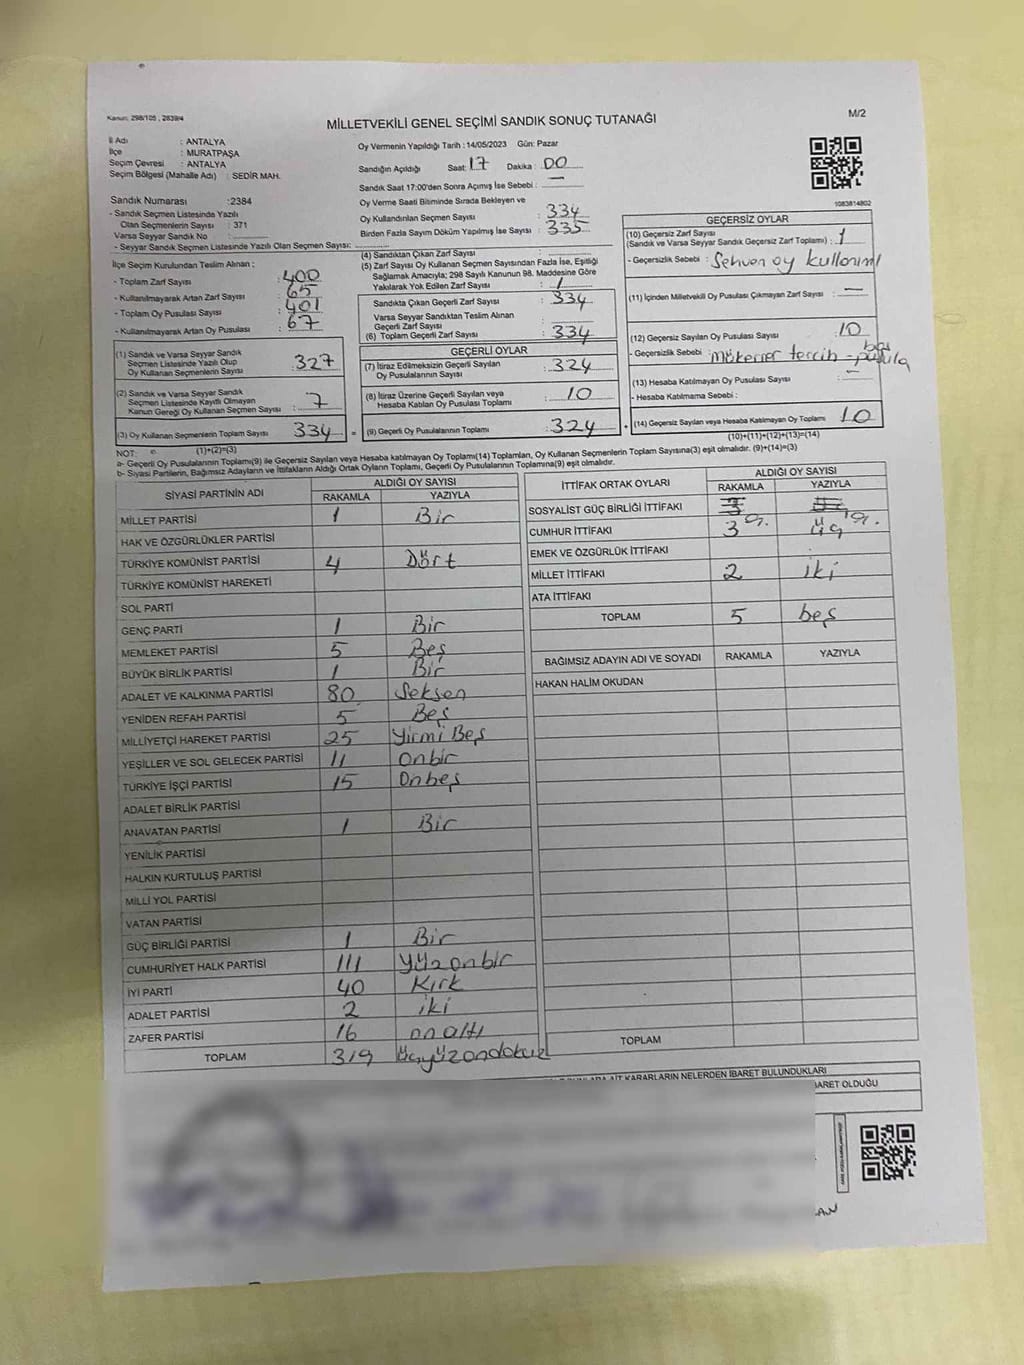 Kanun: 298/105 , 2839/4
MİLLETVEKİLİ GENEL SEÇİMİ SANDIK SONUÇ TUTANAĞI
M/2
İl Adı : ANTALYA
İlçe : MURATPAŞA
Seçim Çevresi : ANTALYA
Seçim Bölgesi (Mahalle Adı) : SEDİR MAH.
Sandık Numarası :2384
- Sandık Seçmen Listesinde Yazılı
Olan Seçmenlerin Sayısı : 371
Varsa Seyyar Sandık No :
- Seyyar Sandık Seçmen Listesinde Yazılı Olan Seçmen Sayısı:
Oy Vermenin Yapıldığı Tarih :14/05/2023 Gün: Pazar
Sandığın Açıldığı Saat: 17 Dakika : 00
Sandık Saat 17:00'den Sonra Açımış İse Sebebi : —
Oy Verme Saati Bitiminde Sırada Bekleyen ve
Oy Kullandırılan Seçmen Sayısı : 334
Birden Fazla Sayım Döküm Yapılmış İse Sayısı : 335
1083814802
İlçe Seçim Kurulundan Teslim Alınan :
- Toplam Zarf Sayısı : 400
- Kullanılmayarak Artan Zarf Sayısı : 65
- Toplam Oy Pusulası : 401
- Kullanılmayarak Artan Oy Pusulası : 67
(1) Sandık ve Varsa Seyyar Sandık
Seçmen Listesinde Yazılı Olup
Oy Kullanan Seçmenlerin Sayısı : 327
(2) Sandık ve Varsa Seyyar Sandık
Seçmen Listesinde Kayıtlı Olmayan
Kanun Gereği Oy Kullanan Seçmen Sayısı : 7
(3) Oy Kullanan Seçmenlerin Toplam Sayısı 334 =
(4) Sandıktan Çıkan Zarf Sayısı :
(5) Zarf Sayısı Oy Kullanan Seçmen Sayısından Fazla İse, Eşitliği
Sağlamak Amacıyla; 298 Sayılı Kanunun 98. Maddesine Göre
Yakılarak Yok Edilen Zarf Sayısı : 1
Sandıkta Çıkan Geçerli Zarf Sayısı : 334
Varsa Seyyar Sandıktan Teslim Alınan
Geçerli Zarf Sayısı :
(6) Toplam Geçerli Zarf Sayısı : 334
GEÇERLİ OYLAR
(7) İtiraz Edilmeksizin Geçerli Sayılan
Oy Pusulalarının Sayısı : 324
(8) İtiraz Üzerine Geçerli Sayılan veya
Hesaba Katılan Oy Pusulası Toplamı : 10
(9) Geçerli Oy Pusulalarının Toplamı : 324 +
GEÇERSİZ OYLAR
(10) Geçersiz Zarf Sayısı
(Sandık ve Varsa Seyyar Sandık Geçersiz Zarf Toplamı) : 1
- Geçersizlik Sebebi : Sehven oy kullanımı
(11) İçinden Milletvekili Oy Pusulası Çıkmayan Zarf Sayısı : —
(12) Geçersiz Sayılan Oy Pusulası Sayısı : 10
- Geçersizlik Sebebi : Mükerrer tercih - boş pusula
(13) Hesaba Katılmayan Oy Pusulası Sayısı : —
- Hesaba Katılmama Sebebi :
(14) Geçersiz Sayılan veya Hesaba Katılmayan Oy Toplamı : 10
NOT: (1)+(2)=(3)
(10)+(11)+(12)+(13)=(14)
a- Geçerli Oy Pusulalarının Toplamı(9) ile Geçersiz Sayılan veya Hesaba Katılmayan Oy Toplamı(14) Toplamları, Oy Kullanan Seçmenlerin Toplam Sayısına(3) eşit olmalıdır. (9)+(14)=(3)
b- Siyasi Partilerin, Bağımsız Adayların ve İttifakların Aldığı Ortak Oyların Toplamı, Geçerli Oy Pusulalarının Toplamına(9) eşit olmalıdır.
SİYASİ PARTİNİN ADI ALDIĞI OY SAYISI
RAKAMLA YAZIYLA
MİLLET PARTİSİ 1 Bir
HAK VE ÖZGÜRLÜKLER PARTİSİ
TÜRKİYE KOMÜNİST PARTİSİ 4 Dört
TÜRKİYE KOMÜNİST HAREKETİ
SOL PARTİ
GENÇ PARTİ 1 Bir
MEMLEKET PARTİSİ 5 Beş
BÜYÜK BİRLİK PARTİSİ 1 Bir
ADALET VE KALKINMA PARTİSİ 80 Seksen
YENİDEN REFAH PARTİSİ 5 Beş
MİLLİYETÇİ HAREKET PARTİSİ 25 Yirmi Beş
YEŞİLLER VE SOL GELECEK PARTİSİ 11 Onbir
TÜRKİYE İŞÇİ PARTİSİ 15 Onbeş
ADALET BİRLİK PARTİSİ
ANAVATAN PARTİSİ 1 Bir
YENİLİK PARTİSİ
HALKIN KURTULUŞ PARTİSİ
MİLLİ YOL PARTİSİ
VATAN PARTİSİ
GÜÇ BİRLİĞİ PARTİSİ 1 Bir
CUMHURİYET HALK PARTİSİ 111 Yüzonbir
İYİ PARTİ 40 Kırk
ADALET PARTİSİ 2 iki
ZAFER PARTİSİ 16 onaltı
TOPLAM 319 üçyüzondokuz
İTTİFAK ORTAK OYLARI ALDIĞI OY SAYISI
RAKAMLA YAZIYLA
SOSYALİST GÜÇ BİRLİĞİ İTTİFAKI
CUMHUR İTTİFAKI 3 üç
EMEK VE ÖZGÜRLÜK İTTİFAKI
MİLLET İTTİFAKI 2 iki
ATA İTTİFAKI
TOPLAM 5 beş
BAĞIMSIZ ADAYIN ADI VE SOYADI RAKAMLA YAZIYLA
HAKAN HALİM OKUDAN
TOPLAM
AİT KARARLARIN NELERDEN İBARET BULUNDUKLARI
BARET OLDUĞU